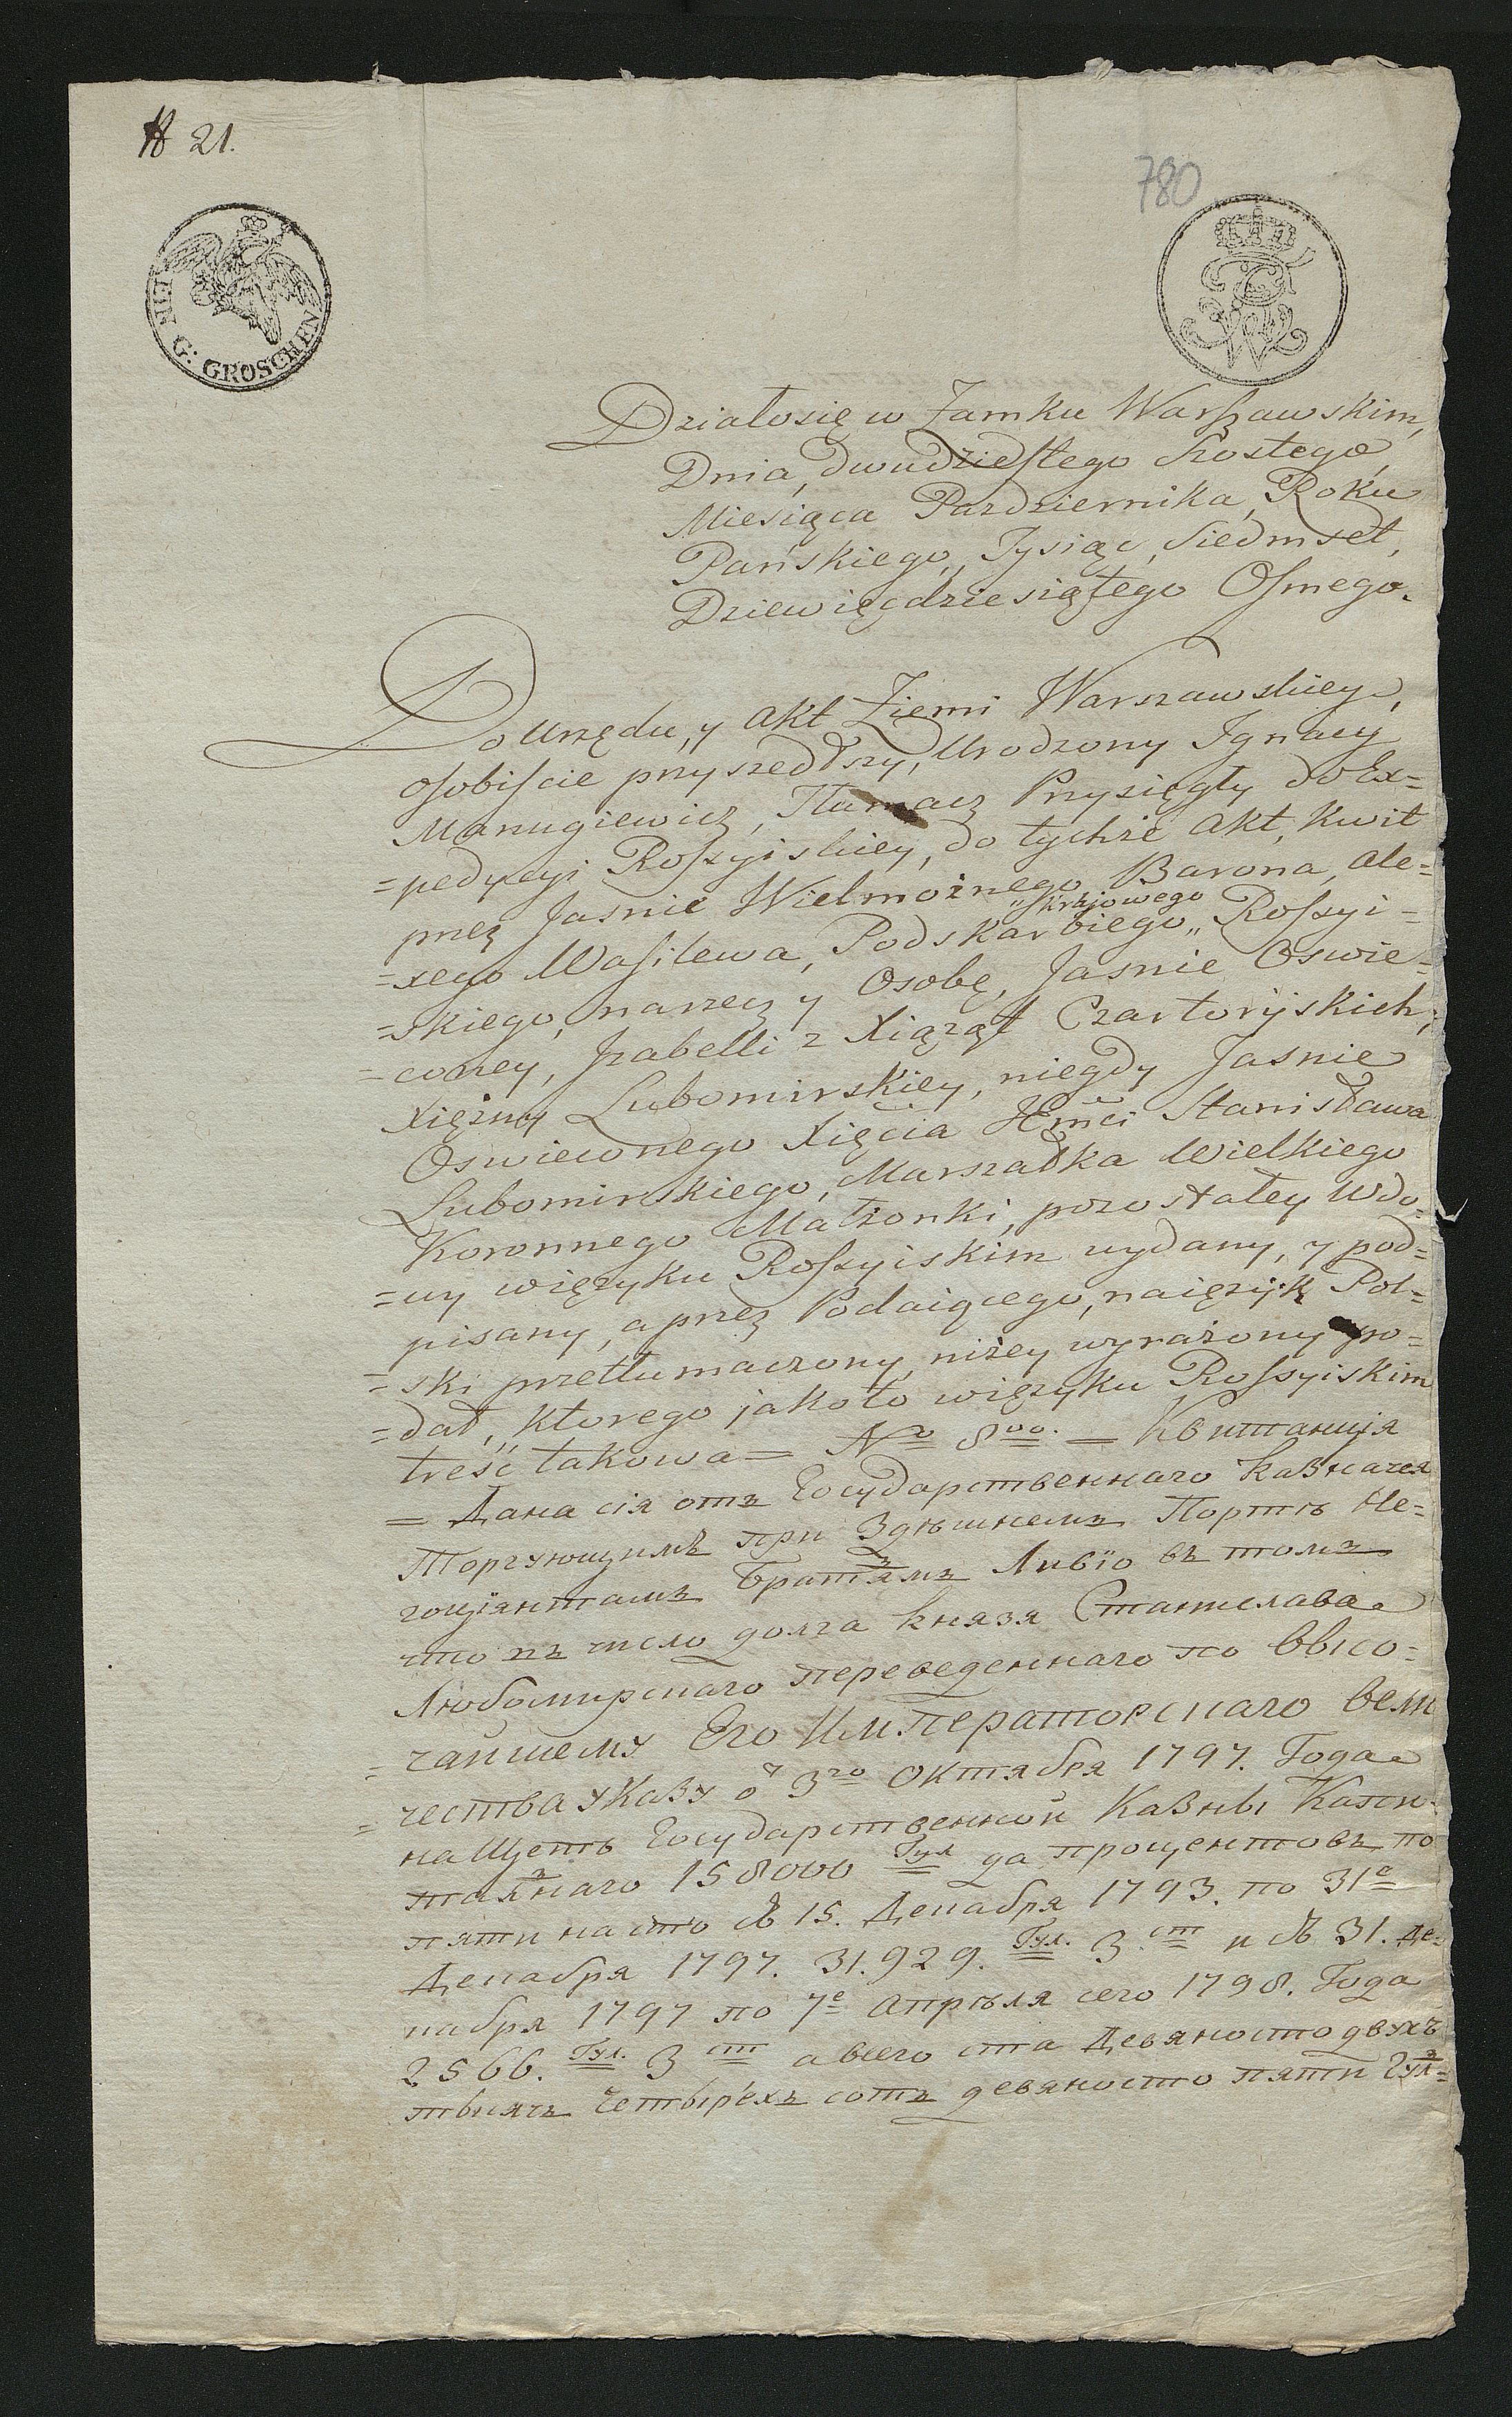 21.
780
EIN G: GROSCHEN
Działosię w Zamku Warszawskim,
Dnia, dwudziestego Szostego
Miesiąca Pazdziernika, Roku
Pańskiego, Tysiąc, Siedmset,
Dziewięcdziesiątego Osmego.
Do Urzędu, y Akt Ziemi Warszawskiey,
osobiscie przyszedłszy, Urodzony Ignacy
Manugiewicz, Tłumacz Przysięgły do Ex=
=pedycyi Rossyiskiey, do tychże Akt, Kwit
przez Jasnie Wielmożnego Barona, Ale=
"Krajowego
=xego Wasilewa, Podskarbiego „ Rossyi=
=skiego, narzecz y Osobę, Jasnie Oswie=
=coney, Izabelli z Xiążąt Czartoryskich,
Xiężny Lubomirskiey, niegdy Jasnie
Oswieconego Xięcia Jmći Stanisława
Lubomirskiego, Marszałka Wielkiego
Koronnego Małżonki, pozostałey Wdo=
=wy więzyku Rossyiskim wydany, y pod=
pisany, a przez Podaiącego, naięzyk Pol=
=ski przetłumaczony, niżey wyrażony po=
=dał, ktorego jakoto więzyku Rossyiskim
treść takowa = No 800. = Квитанція
= Дана сія отъ Государственнаго Казначея
Торгующимъ при Здѣшнемъ Портѣ Не=
гоціянтамъ Братьямъ Ливіо въ томъ
что въ число долга Князя Станислава
Любомирскаго переведеннаго по Высо=
=чайшему Его Императорскаго Вели
=чества Указу о 3го Октября 1797. Года
на Щетъ Государственной Казны Капи
тальнаго 158000 Гул да процентовъ по
пяти на сто съ 15. Декабря 1793. по 31е
Декабря 1797. 31.929. Гул. 3 ст и съ 31. Де=
кабря 1797 по 7е Апрѣля сего 1798. Года
2566. Гул. 3 ст а всего ста Девяносто двухъ
тысячъ Четырехъ сотъ девяносто пяти Гул=